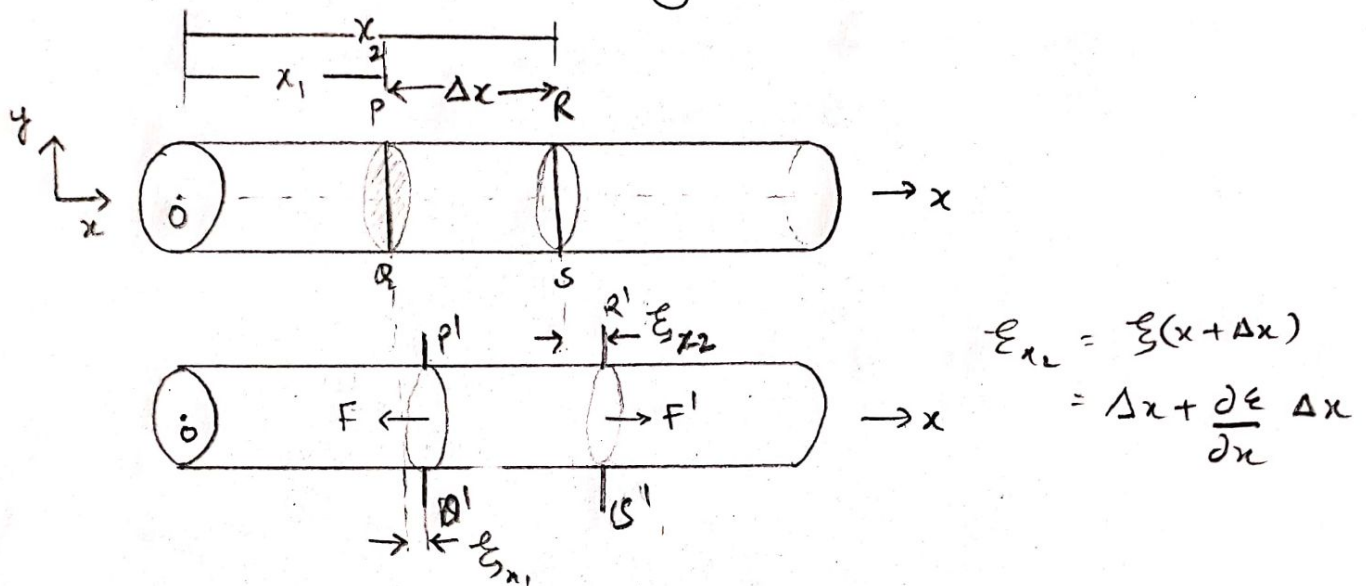 x₂
x₁ Δx
P R
y
x
O → x
Q S
P' R' ξₓ₂
F F' → x
O
Q' S'
ξₓ₁
ξₓ₂ = ξ(x + Δx)
= Δx + ∂ξ/∂x Δx